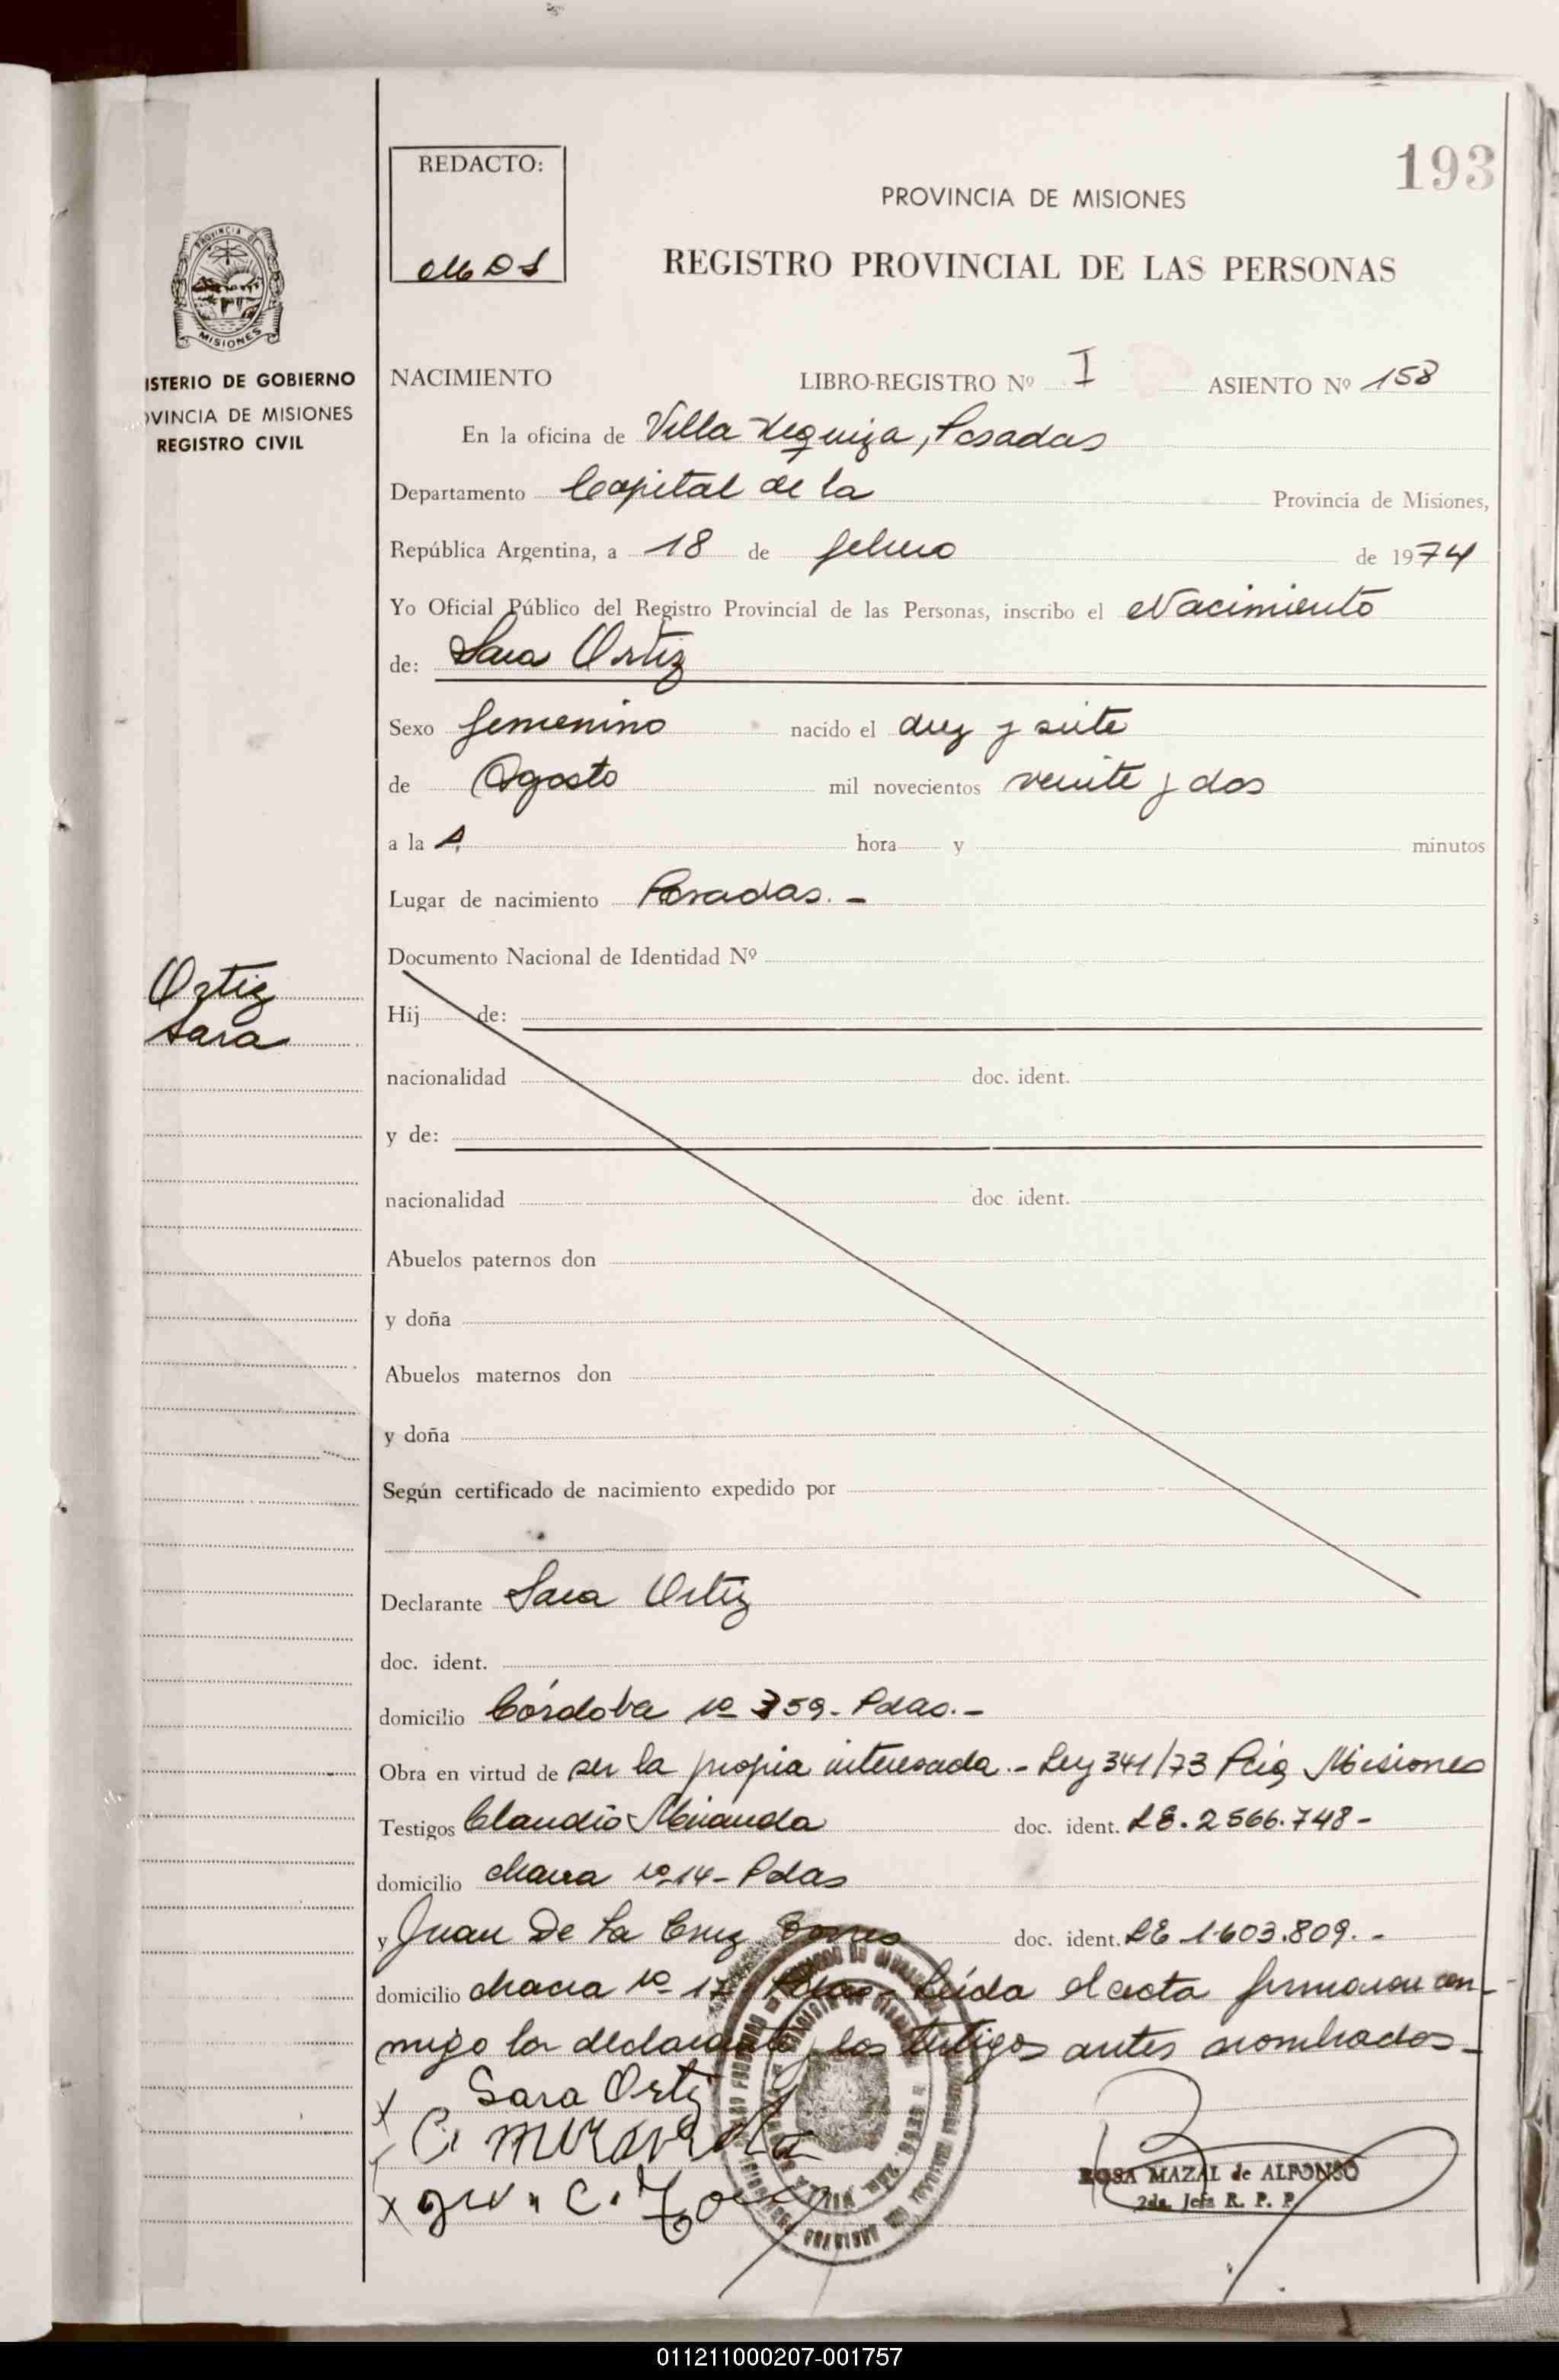 193
REDACTO:
PROVINCIA DE MISIONES
REGISTRO PROVINCIAL DE LAS PERSONAS
PROVINCIA DE
MISIONES
ISTERIO DE GOBIERNO
OVINCIA DE MISIONES
REGISTRO CIVIL
NACIMIENTO LIBRO-REGISTRO Nº I ASIENTO Nº 158
En la oficina de Villa Urquiza, Posadas
Departamento Capital de la Provincia de Misiones,
República Argentina, a 18 de febrero de 1974
Yo Oficial Público del Registro Provincial de las Personas, inscribo el Nacimiento
de: Sara Ortiz
Sexo femenino nacido el diez y siete
de Agosto mil novecientos veinte y dos
a la hora y minutos
Lugar de nacimiento Posadas. -
Documento Nacional de Identidad Nº
Ortiz
Sara
Hij de:
nacionalidad doc. ident.
y de:
nacionalidad doc ident.
Abuelos paternos don
y doña
Abuelos maternos don
y doña
Según certificado de nacimiento expedido por
Declarante Sara Ortiz
doc. ident.
domicilio Córdoba nº 359- Pdas.-
Obra en virtud de ser la propia interesada.- Ley 341/73 Pcia Misiones
Testigos Claudio Miranda doc. ident. LE. 2566.748-
domicilio chacra nº 14- Pdas
y Juan De La Cruz Torres doc. ident. LE 1603.809.-
domicilio chacra nº 17 Pdas- Leída el acta firmaron con-
migo la declarante y los testigos antes nombrados-
x Sara Ortiz
C. miranda
x
ROSA MAZAL de ALFONSO
2da. Jefa R. P. P.
011211000207-001757